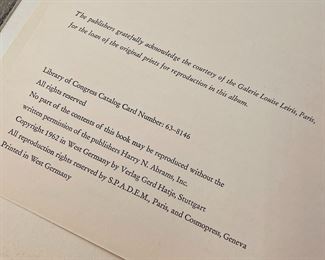 The publishers gratefully acknowledge the courtesy of the Galerie Louise Leiris, Paris,
for the loan of the original prints for reproduction in this album.
Library of Congress Catalog Card Number: 63-8146
All rights reserved
No part of the contents of this book may be reproduced without the
written permission of the publishers Harry N. Abrams, Inc.
Copyright 1962 in West Germany by Verlag Gerd Hatje, Stuttgart
All reproduction rights reserved by S.P.A.D.E.M., Paris, and Cosmopress, Geneva
Printed in West Germany